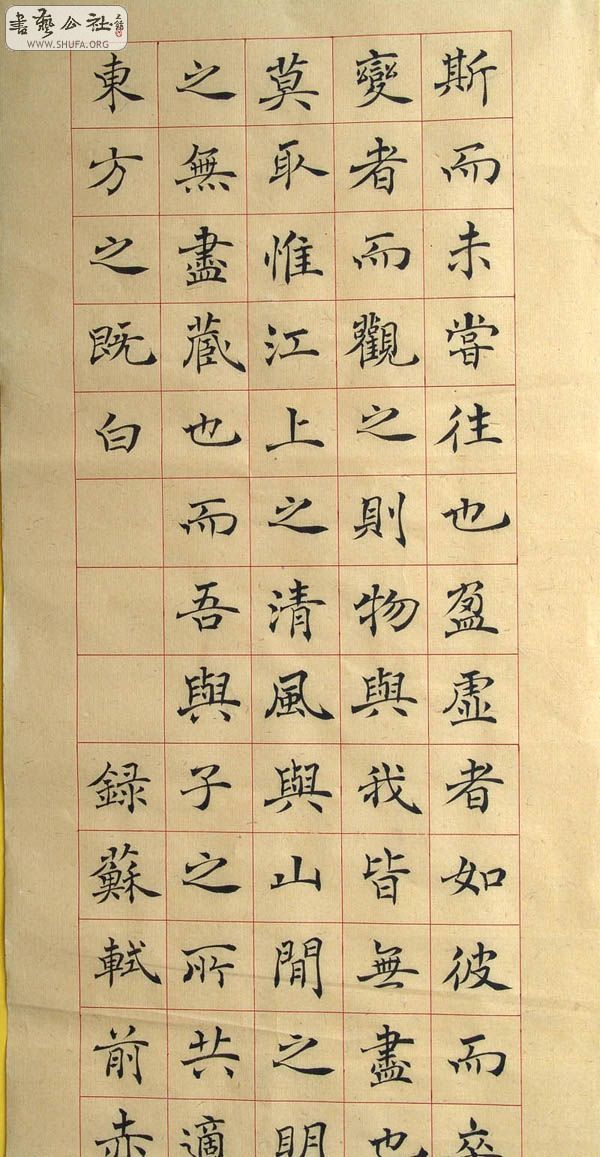 書藝公社
WWW.SHUFA.ORG
斯而未嘗往也盈虛者如彼而卒
變者而觀之則物與我皆無盡也
莫取惟江上之清風與山閒之明
之無盡藏也而吾與子之所共適
東方之既白 録蘇軾前赤